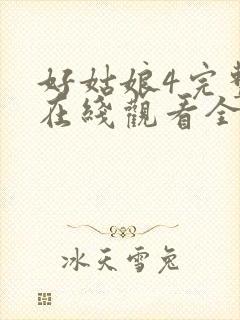 好姑娘4完整
在线觀看全
冰天雪兔